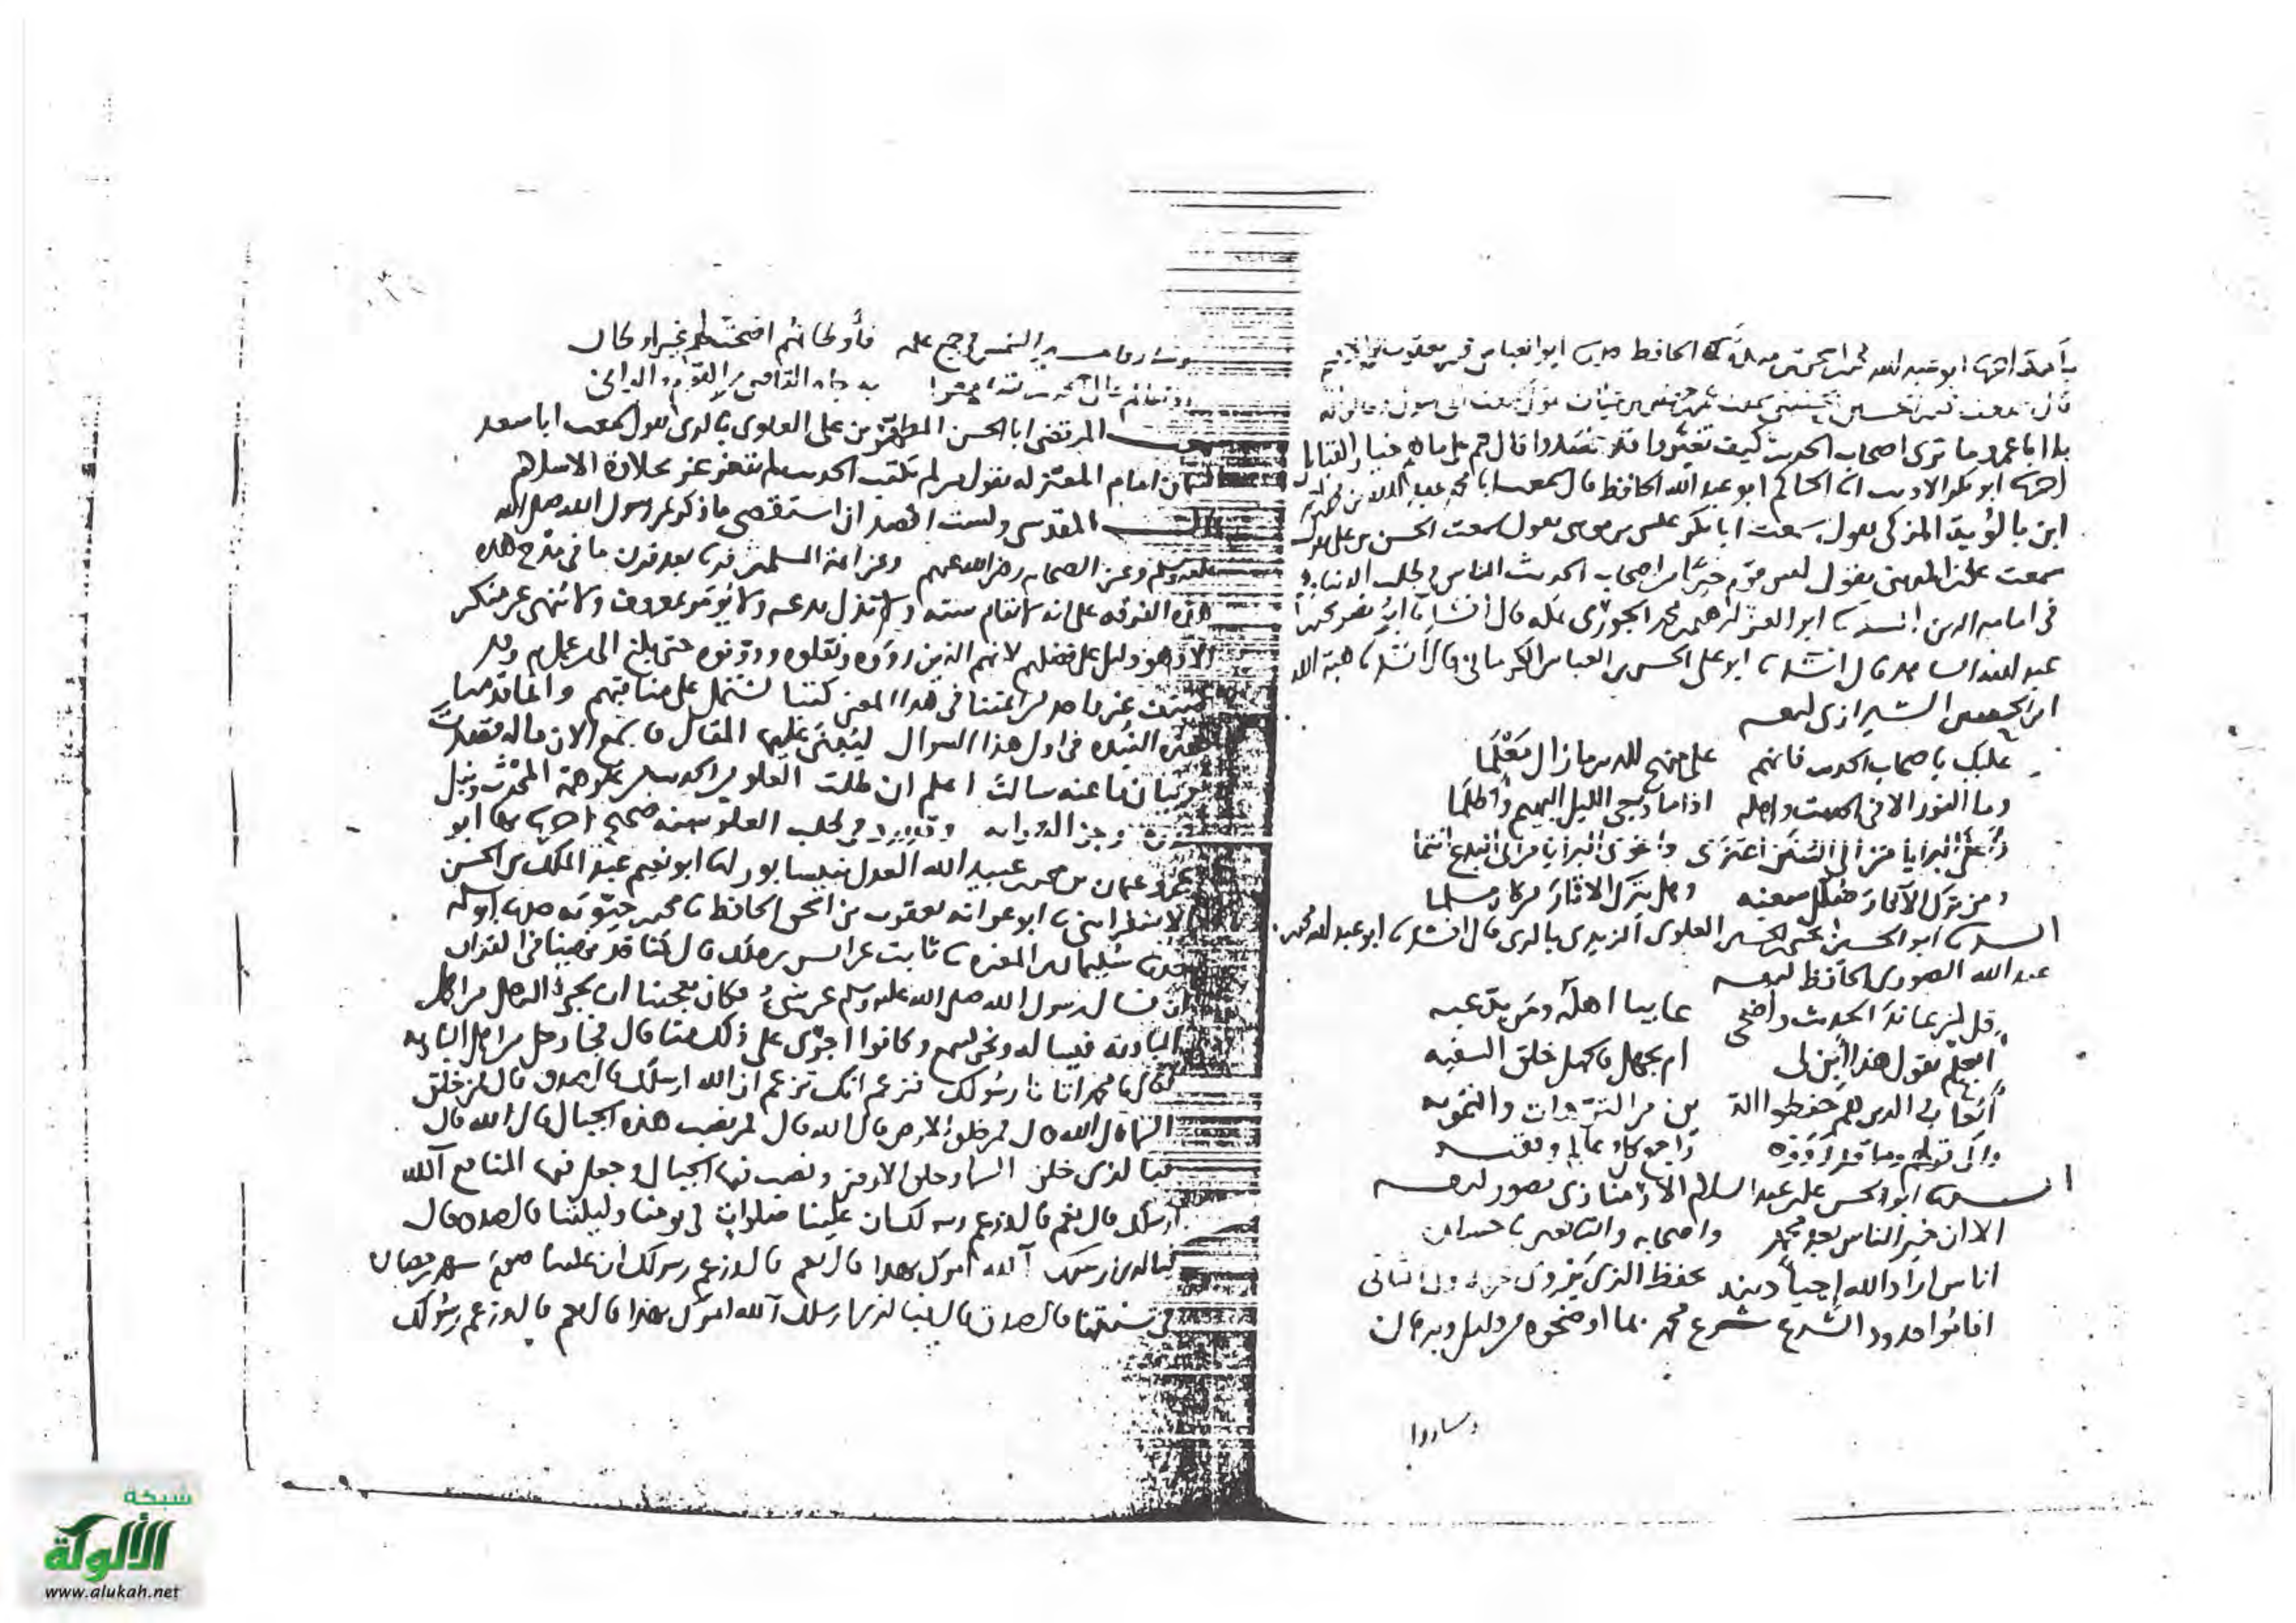 اخبرنا ابو عبد الله الحافظ حدثنا ابو العباس محمد بن يعقوب
قال سمعت
يا ابا عمرو ما ترى اصحاب الحديث كيف تغيروا قد فسدوا قال هم على ما هم خيار القبايل
اخبرنا ابو بكر الاديب انا الحاكم ابو عبد الله الحافظ قال سمعت ابا محمد عبد الله بن
ابن بالويه المزكي يقول سمعت ابا بكر بن موسى يقول سمعت الحسن بن علي
سمعت علي بن المديني يقول ليس قوم خيرا من اصحاب الحديث الناس في طلب الدنيا وهم
في اقامة الدين انشدنا ابو العز محمد الجوزي قال انشدنا ابو نصر محمد
عبد الله قال انشدنا ابو علي الحسن بن العباس الكرماني قال انشدنا هبة الله
ابن الشيرازي لنفسه
عليك باصحاب الحديث فانهم على منهج للدين ما زال معلما
وما النور الا في الحديث واهله اذا ما دجى الليل البهيم واظلما
واعلى البرايا من الى السنن اعتزى واغوى البرايا من الى البدع انتما
ومن ترك الآثار ضلل سعيه وهل يترك الاثار من كان مسلما
انشدنا ابو الحسين يحيى بن الحسين العلوي الزيدي بالري قال انشدنا ابو عبد الله محمد بن
عبد الله الصوري الحافظ لنفسه
قل لمن عاند الحديث واضحى عايبا اهله ومن يدعيه
ابعلم تقول هذا ابن لي ام بجهل فالجهل خلق السفيه
ايعاب الذين هم حفظوا الد ين من الترهات والتمويه
والى قولهم وما قد رووه راجع كل عالم وفقيه
انشدنا ابو الحسن علي بن عبد السلام الارمنازي بصور لنفسه
الا ان خير الناس بعد محمد واصحابه والتابعين باحسان
اناس اراد الله احياء دينه بحفظ الذي يروى عن الاول الثاني
اقاموا حدود الشرع شرع محمد بما اوضحوه من دليل وبرهان
وساروا
وساروا الشمس في جمع علمه فأوطانهم اضحت لهم غير اوطان
به جاه القاصي من القوم والداني
سمعت المرتضى ابا الحسن المطهر بن علي العلوي بالري يقول سمعت ابا سعد
السمان امام المعتزلة يقول من لم يكتب الحديث لم يتغرغر بحلاوة الاسلام
قال المقدسي ولست اقصد ان استقصي ما ذكر عن رسول الله صلى الله
عليه وسلم وعن الصحابة رضي الله عنهم وعن ائمة المسلمين قرنا بعد قرن ما في مدح هذه
هذه الفرقة على انه لا تقام سنة ولا تخذل بدعة ولا يؤمر بمعروف ولا ينهى عن منكر
الا وهو دليل على فضلهم لانهم الذين رووه ونقلوه ودونوه حتى بلغ الى من عمل به وقد
صنف غير واحد من ائمتنا في هذا المعنى كتبا تشتمل على مناقبهم وانما قدمنا
هذه النبذة في اول هذا السوال ليبتنى عليها المقال فاسمع الان ما له قصدت
وبيان ما عنه سالت اعلم ان طلب العلو من الحديث من علو همة المحدث ونبل
قدره وجزالة رايه وقد ورد في طلب العلو سنة صحيحة اخبرنا بها ابو
عمرو عثمان بن محمد بن عبيد الله العدل بنيسابور انا ابو نعيم عبد الملك بن الحسن
الاسفرايني نا ابو عوانة يعقوب بن اسحق الحافظ نا محمد بن حيويه حدثنا ابو سلمة
حدثنا سليمان بن المغيرة نا ثابت عن انس بن مالك قال كنا قد نهينا في القران
ان نسال رسول الله صلى الله عليه وسلم عن شيء فكان يعجبنا ان يجيء الرجل من اهل
البادية فيساله ونحن نسمع وكانوا اجرى على ذلك منا قال فجاء رجل من اهل البادية
فقال يا محمد اتانا رسولك فزعم انك تزعم ان الله ارسلك قال صدق قال فمن خلق
السماء قال الله قال فمن خلق الارض قال الله قال فمن نصب هذه الجبال قال الله قال
فبالذي خلق السماء وخلق الارض ونصب فيها الجبال وجعل فيها المنافع آلله
ارسلك قال نعم قال وزعم رسولك ان علينا صلوات في يومنا وليلتنا قال صدق قال
فبالذي ارسلك آلله امرك بهذا قال نعم قال وزعم رسولك ان علينا صوم شهر رمضان
في سنتنا قال صدق قال فبالذي ارسلك آلله امرك بهذا قال نعم قال وزعم رسولك
شبكة
الألوكة
www.alukah.net